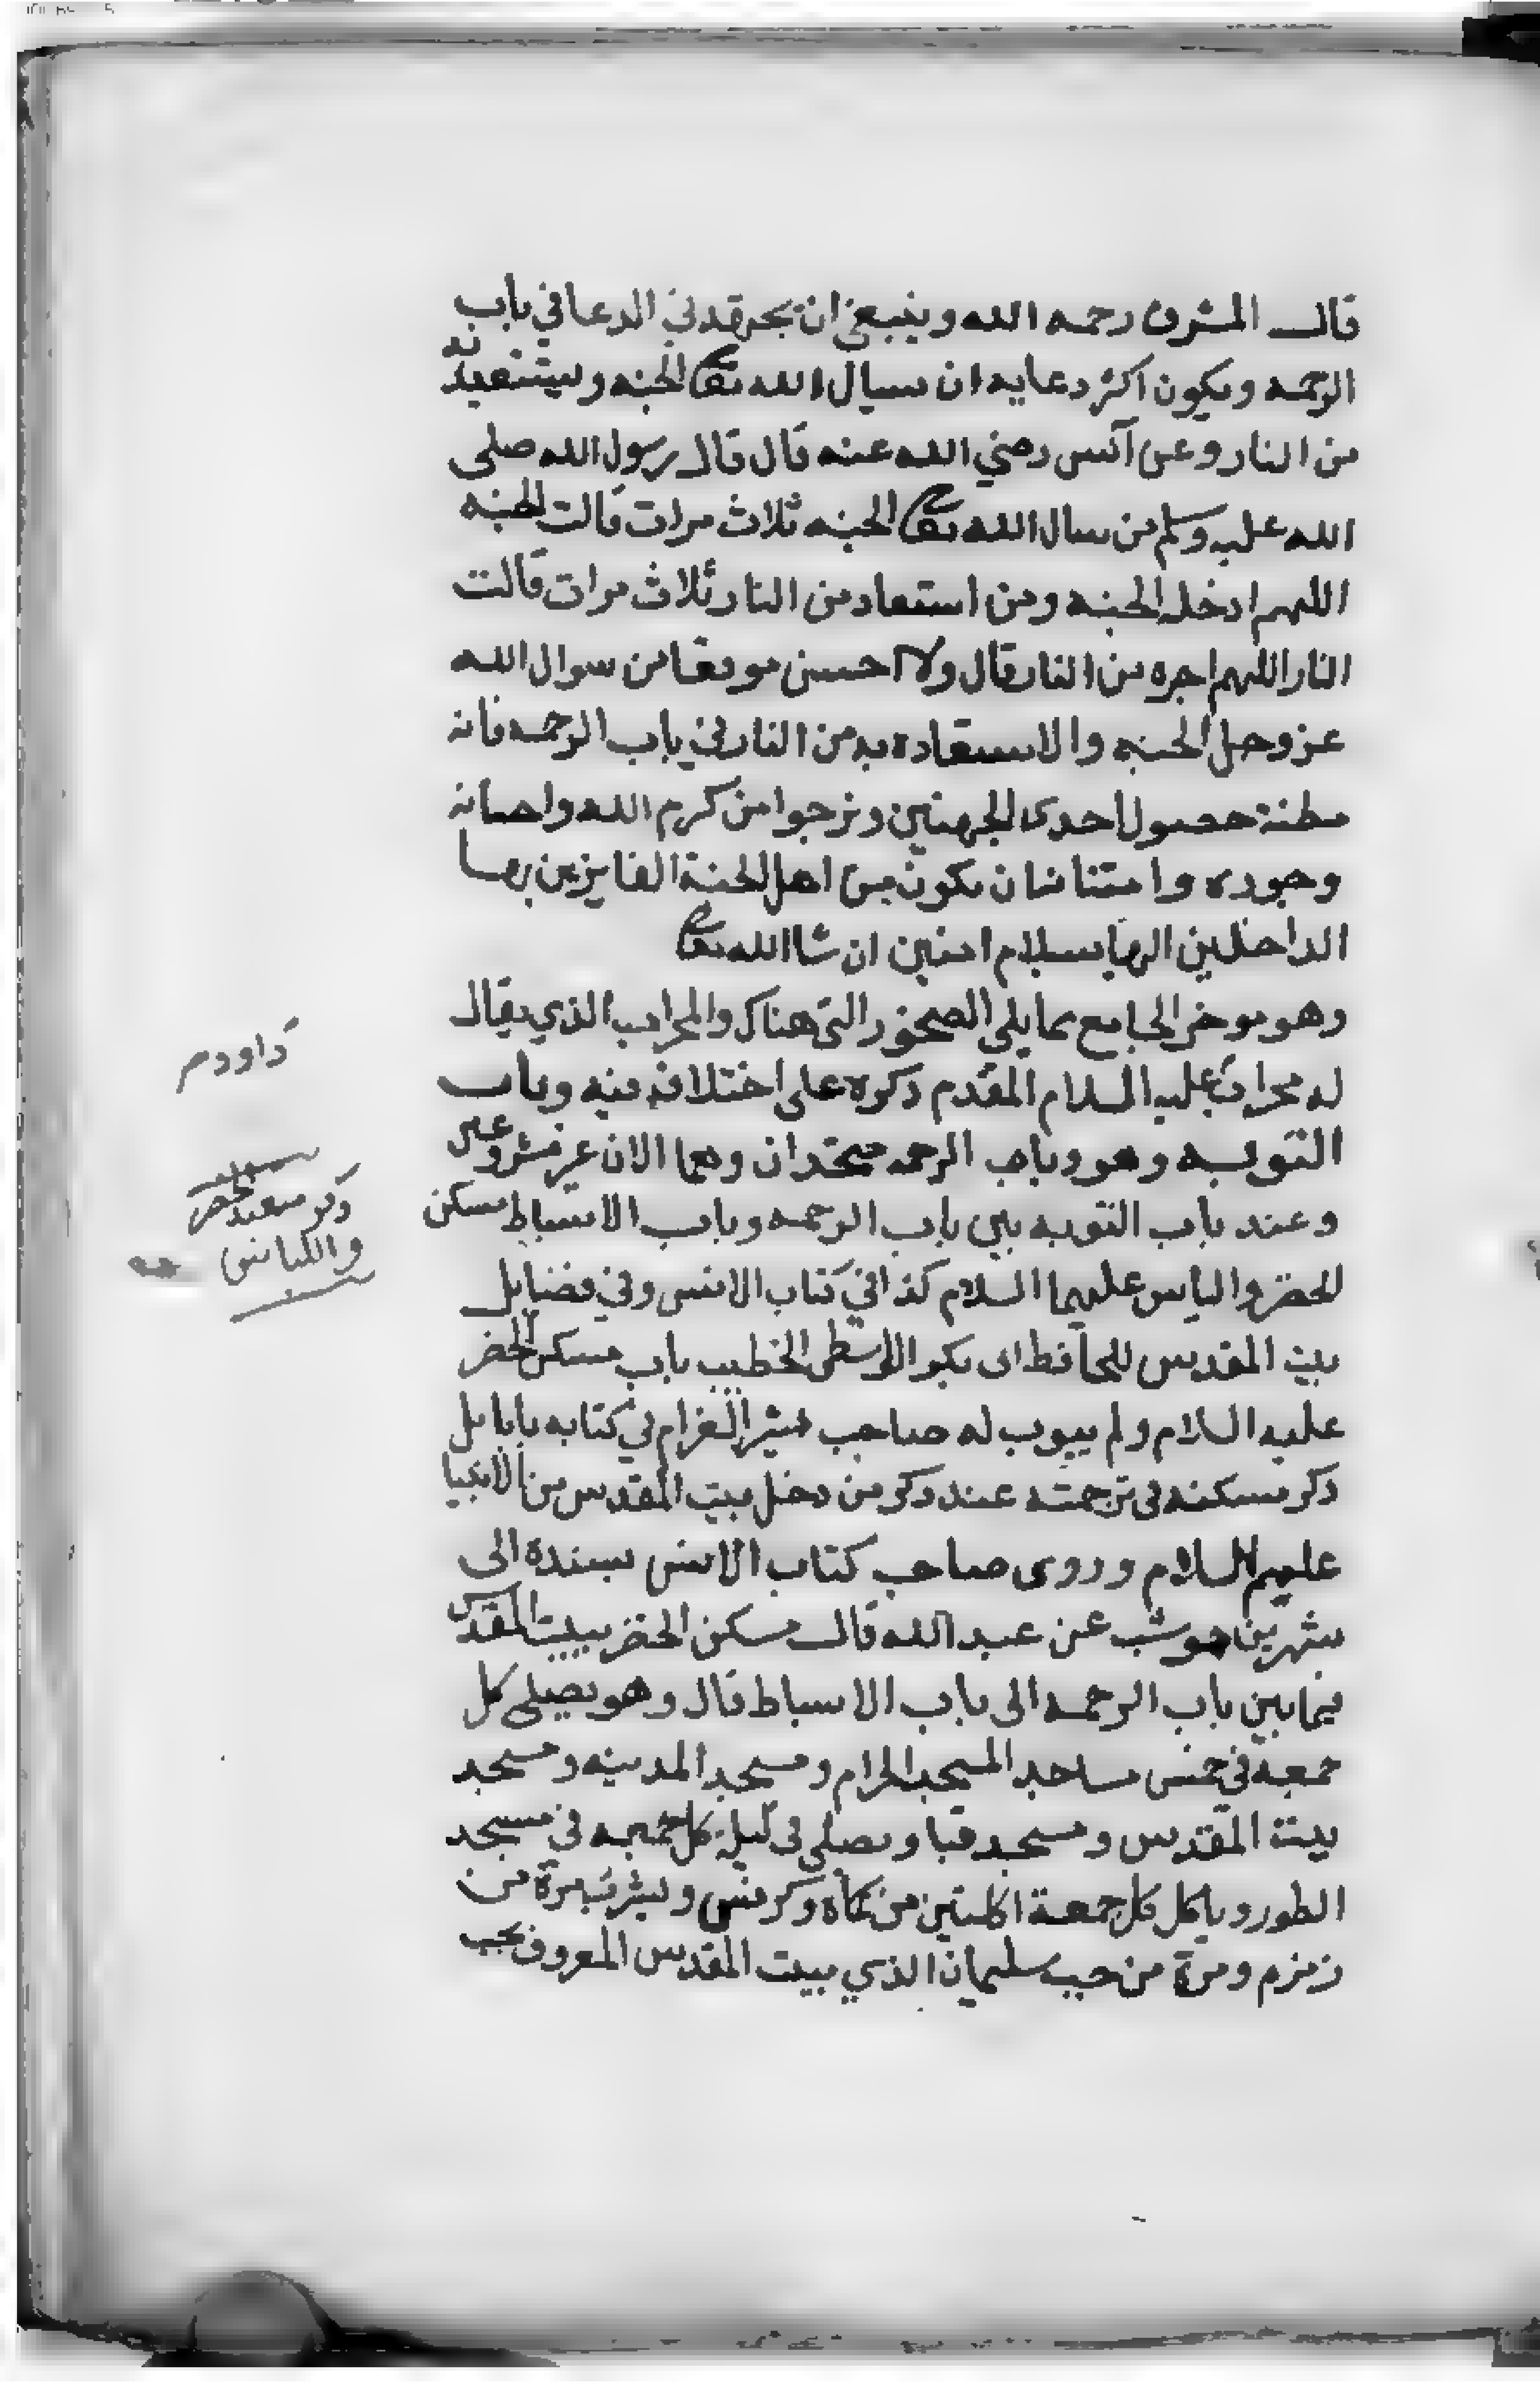 قال المشرف رحمه الله وينبغي ان يجرقدني الدعا في باب
الرحمه ويكون اكثر دعايه ان يسال الله تعا الجنه ويستعيذ به
من النار وعن أنس رضي الله عنه قال قال رسول الله صلى
الله عليه وسلم من سال الله تعا الجنه ثلاث مرات قالت الجنه
اللهم ادخله الجنه ومن استعاد من النار ثلاث مرات قالت
النار اللهم اجره من النار قال ولا احسن موقعا من سوال الله
عز وجل الجنه والاستعاده به من النار في باب الرحمه فانه
مظنة حصول احدى الجهتين ونرجوا من كرم الله واحسانه
وجوده وامتنانه ان نكون من اهل الجنة الفايزين بها
الداخلين اليها بسلام امنين ان شا الله تعا
وهو موخر الجامع مما يلي الصخور التي هناك والمحراب الذي يقال
له محراب عليه السلام المقدم ذكره على اختلاف فيه وباب
التوبه وهو وباب الرحمه متحدان وهما الان غير مشروعين
وعند باب التوبه بين باب الرحمه وباب الاسباط مسكن
الخضر والياس عليهما السلام كذا في كتاب الانس وفي فضايل
بيت المقدس للحافظ ابى بكر الواسطى الخطيب باب مسكن الخضر
عليه السلام ولم يبوب له صاحب مثير الغرام في كتابه بابا بل
ذكر مسكنه في ترجمته عند ذكر من دخل بيت المقدس من الانبيا
عليهم السلام وروى صاحب كتاب الانس بسنده الى
شهر بن حوشب عن عبد الله قال مسكن الخضر ببيت المقدس
فيما بين باب الرحمه الى باب الاسباط قال وهو يصلى كل
جمعه في خمس مساجد المسجد الحرام ومسجد المدينه ومسجد
بيت المقدس ومسجد قبا ويصلى في ليلة كل جمعه في مسجد
الطور وياكل كل جمعة اكلتين من كمأة وكرفس ويشرب مرة من
زمزم ومرة من جب سليمان الذي ببيت المقدس المعروف بجب
داود م
ذكر معبد الخضر
والكنائس